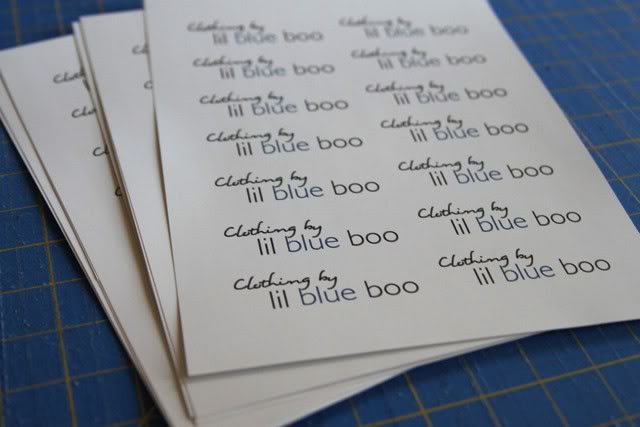 Clothing by
lil blue boo
Clothing by
lil blue boo
Clothing by
lil blue boo
Clothing by
lil blue boo
Clothing by
lil blue boo
Clothing by
lil blue boo
Clothing by
lil blue boo
Clothing by
lil blue boo
Clothing by
lil blue boo
Clothing by
lil blue boo
Clothing by
lil blue boo
Clothing by
lil blue boo
Clothing by
lil blue boo
Clothing by
lil blue boo